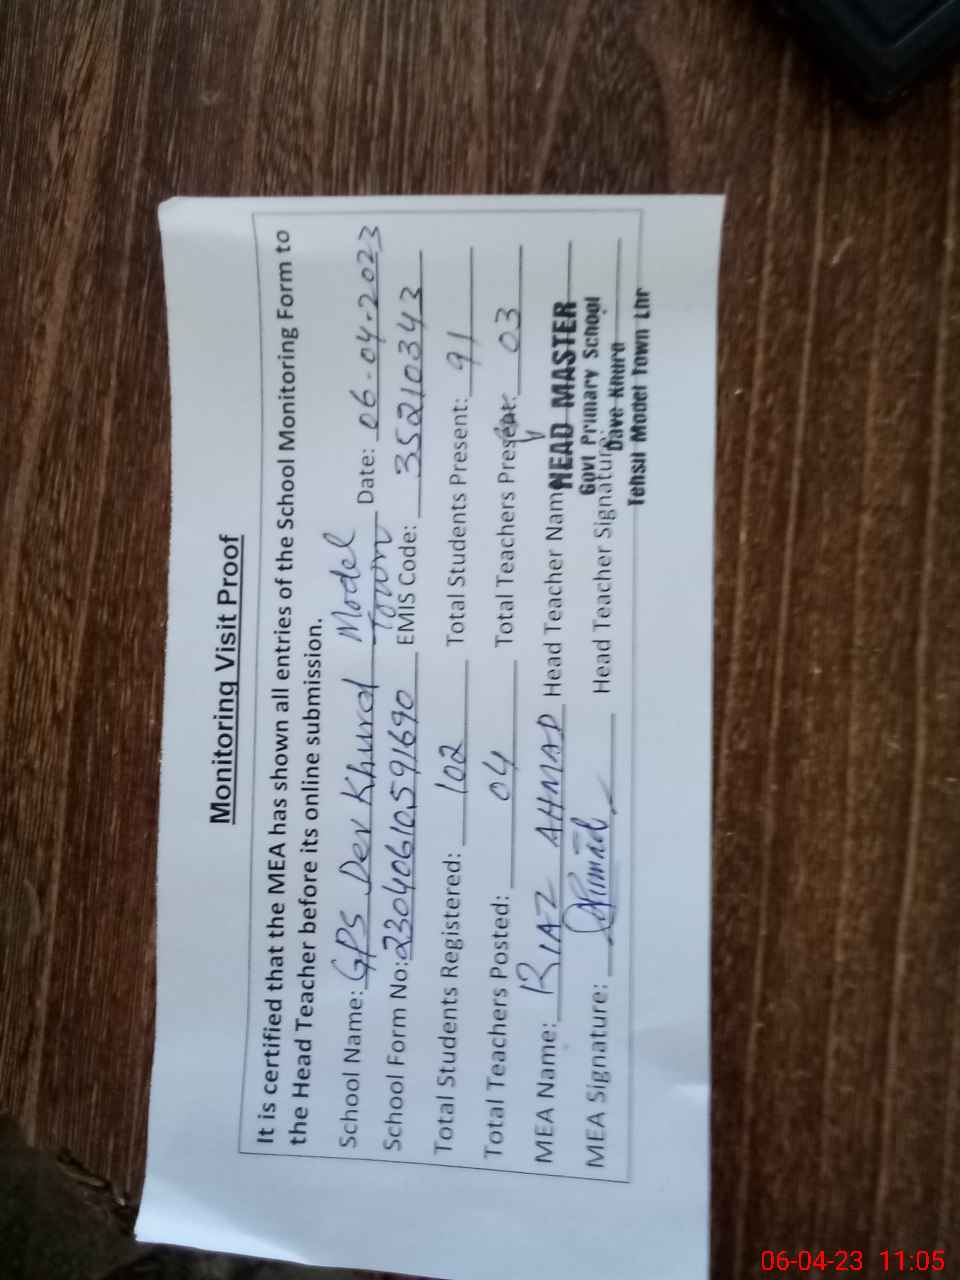 Monitoring Visit Proof
It is certified that the MEA has shown all entries of the School Monitoring Form to
the Head Teacher before its online submission.
School Name: GPS Dev Khurd Model Town Date: 06-04-2023
School Form No: 23040610591690 EMIS Code: 35210343
Total Students Registered: 102 Total Students Present: 91
Total Teachers Posted: 04 Total Teachers Present: 03
MEA Name: RIAZ AHMAD Head Teacher Name
HEAD MASTER
Govt Primary School
MEA Signature: Head Teacher Signature:
Dave Khurd
Tehsil Model Town Lhr
06-04-23 11:05